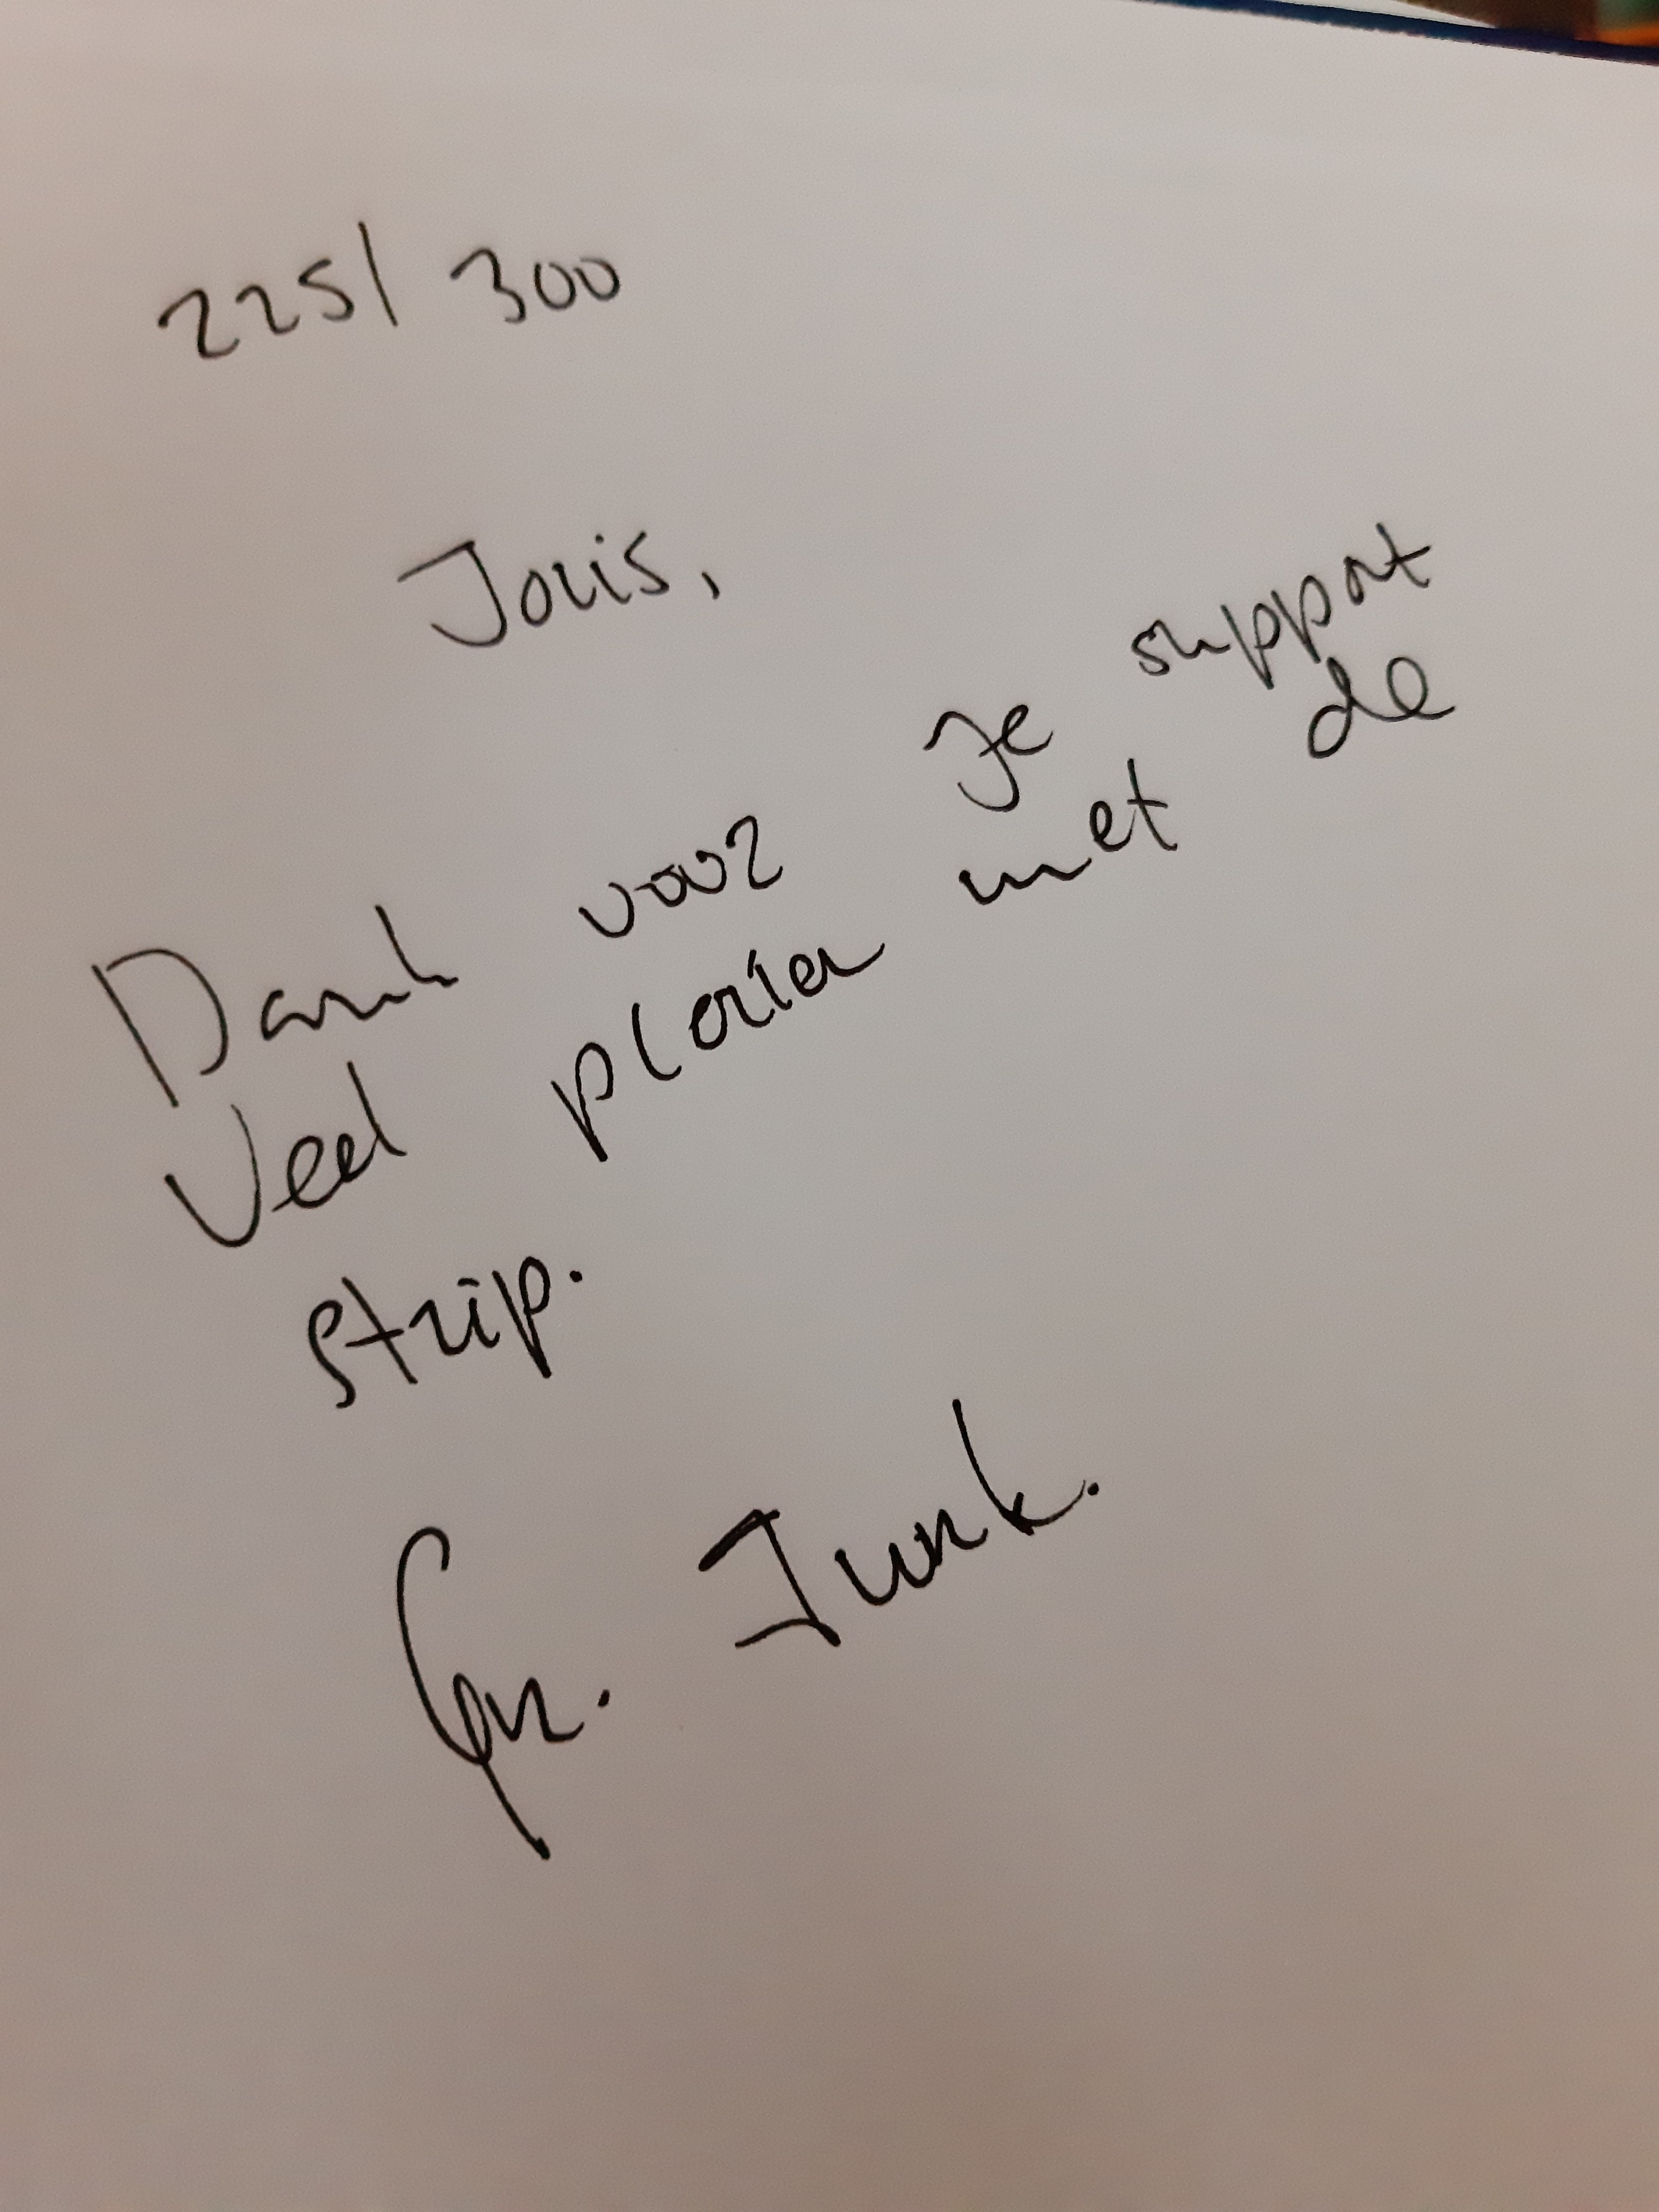 225/300
Joris,
Dank voor je support
Veel plezier met de
strip.
Gr. Junk.